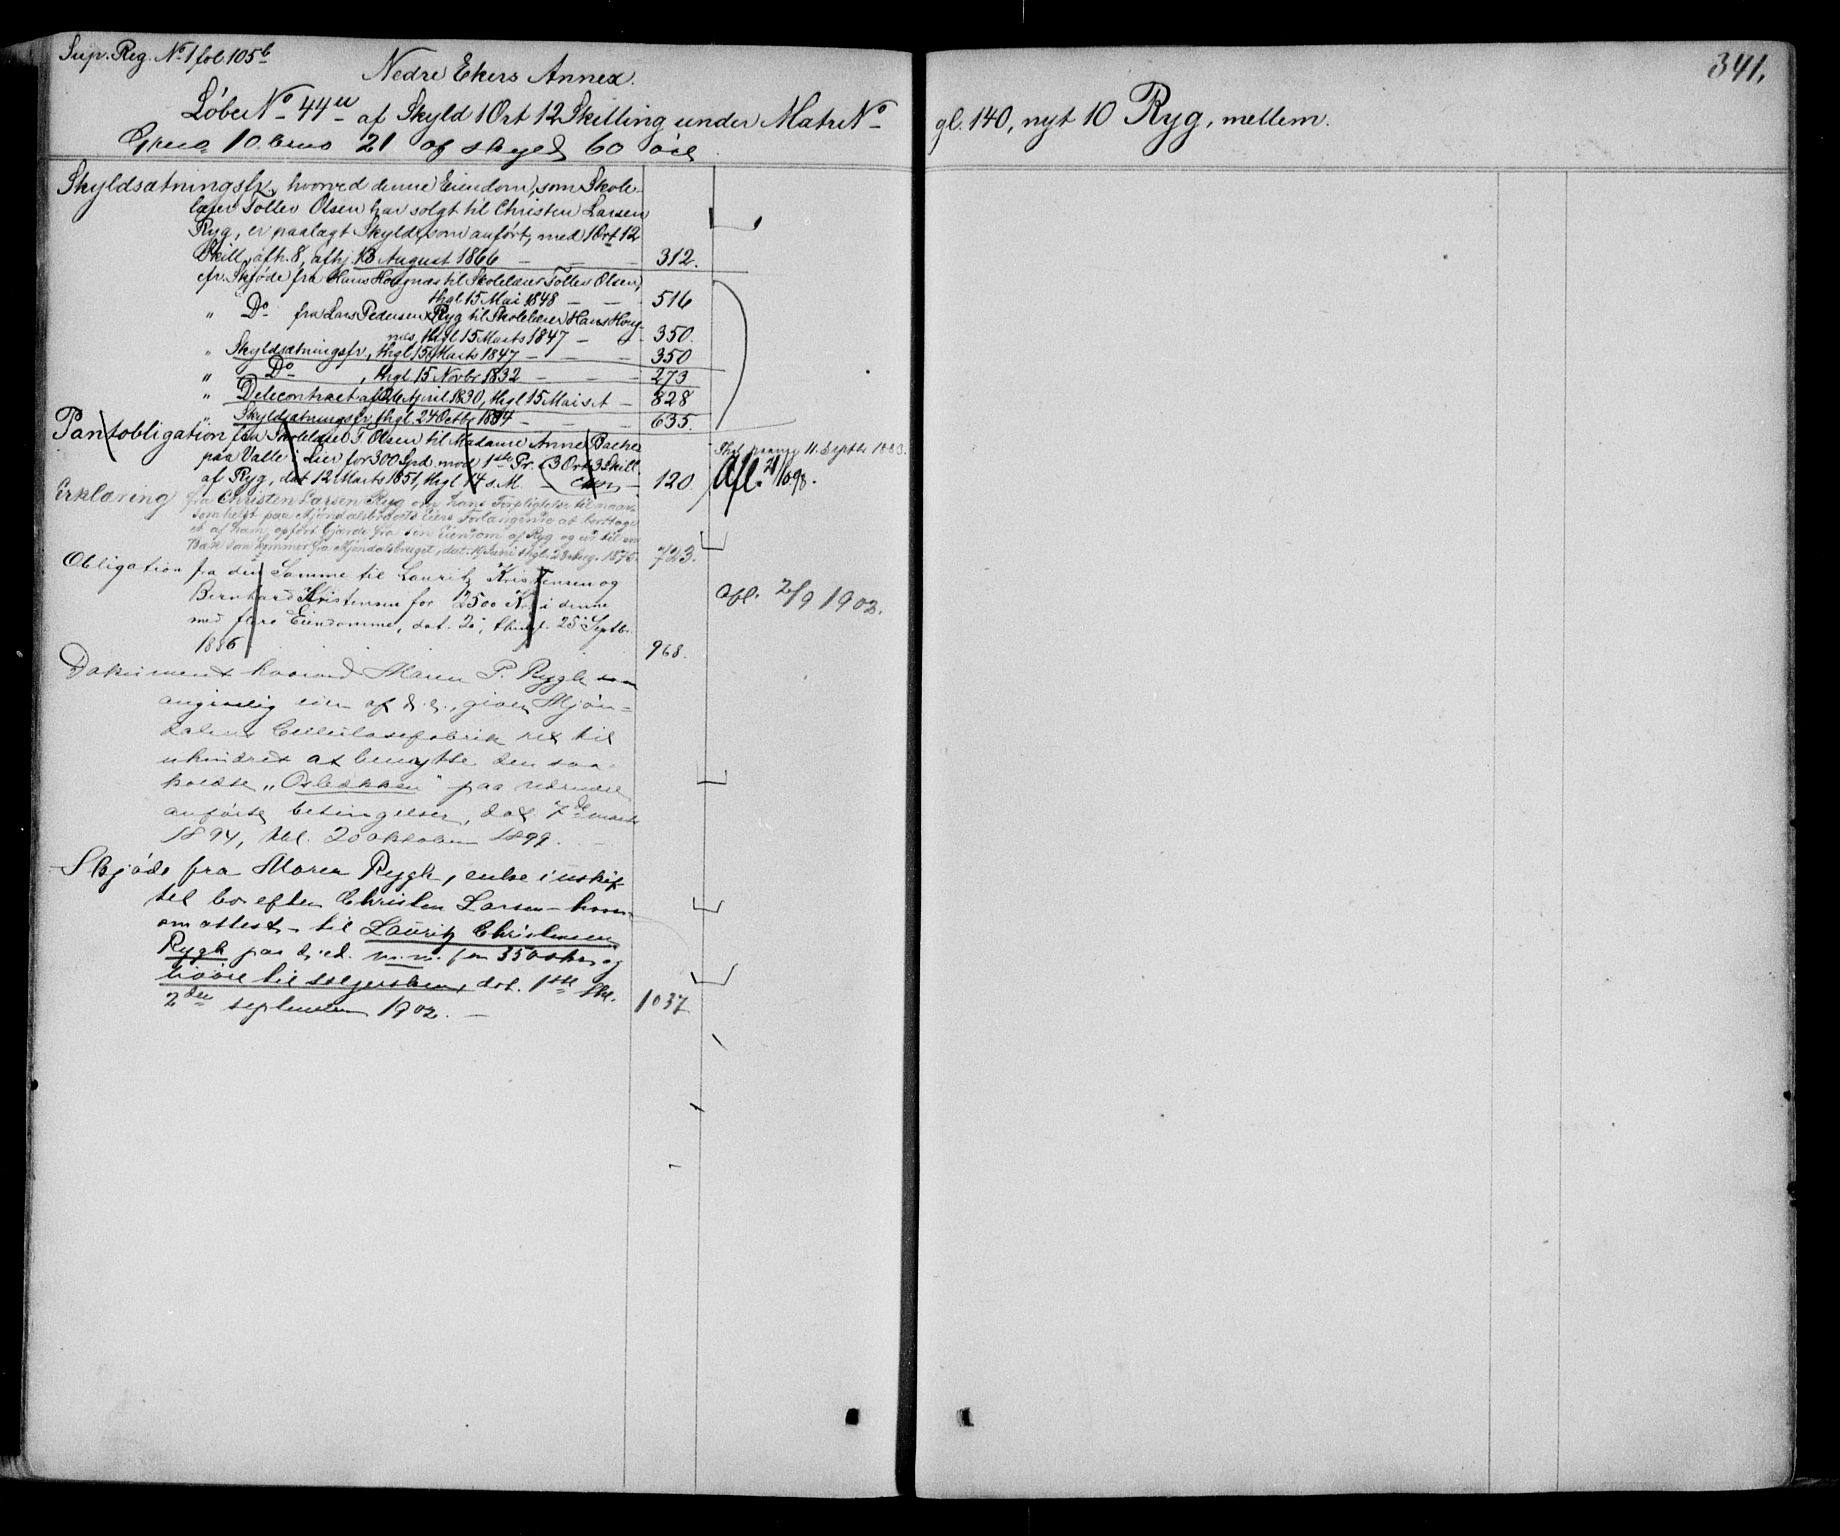 Sup. Reg. No 1 fol. 105b
341.
Nedre Ekers Annex.
Løbe No 44u af Skyld 1 Ort 12 Skilling under Matr No gl. 140, nyt 10 Ryg, mellem.
10. 21 af skyld 60 øre
Skyldsætningsfr., hvorved denne Eiendom, som Skole-
lærer Tollev Olsen har solgt til Christen Larsen
Ryg, er paalagt Skyld, som anført, med 1 Ort 12
Skill., afh. 8, afhj. 13 August 1866 — — — 312.
cfr. Skjøde fra Hans Hougnæs til Skolelærer Tollev Olsen,
thgl 15 Mai 1848 — — 516
" Do fra Lars Pedersen Ryg til Skolelærer Hans Houg-
næs, thgl 15 Marts 1847 — 350.
" Skyldsætningsfr, thgl 15 Marts 1847 — — — 350
" Do , thgl 15 Novbr 1832 — — — 273
" Delecontract af 26 April 1830, thgl 15 Mai s. A — 828
" Skyldsætningsfr, thgl. 24 Octb. 1834 — — — 635.
Pantobligation fra Skolelærer T. Olsen til Madame Anne Bache
paa Valle i Lier for 300 Spd. mod 1ste Pr. (3 Ort 3 Skill.
af Ryg, dat 12 Marts 1851, thgl 14 s. M. — 120.
11. Septbr 1883.
Afl. 21/10 98.
Erklæring fra Christen Larsen Ryg om hans Forpligtelse til naar-
somhelst paa Mjøndalsbrugets Eiers Forlangende at borttage
et af ham opført Gjærde fra den Eiendom af Ryg og ud til en
Bæk som kommer fra Mjøndalsbruget, dat. Juni thgl. 28 Aug. 1875. 723.
Obligation fra den Samme til Lauritz Kristensen og
Bernhard Kristensen for 2500 Kr. i denne
med flere Eiendomme, dat. 20, thingl. 25 Septbr.
1886. 968.
Afl. 2/9 1902.
Dokument hvorved Maren P. Rygh som
angivelig eier af d. e., giver Mjøn-
dalens Cellulosefabrik ret til
uhindret at benytte den saa-
kaldte „Osbækken" paa nærmere
anførte betingelser, dat. 7de marts
1894, thl. 20 oktober 1899. —
Skjøde fra Maren Rygh, enke i uskif-
tet bo efter Christen Larsen — hvor-
om attest — til Lauritz Christensen
Rygh paa d. ed. m. m. for 3500 kr. og
til sælgersken, dat. 1ste thl.
2den september 1902. — 1037